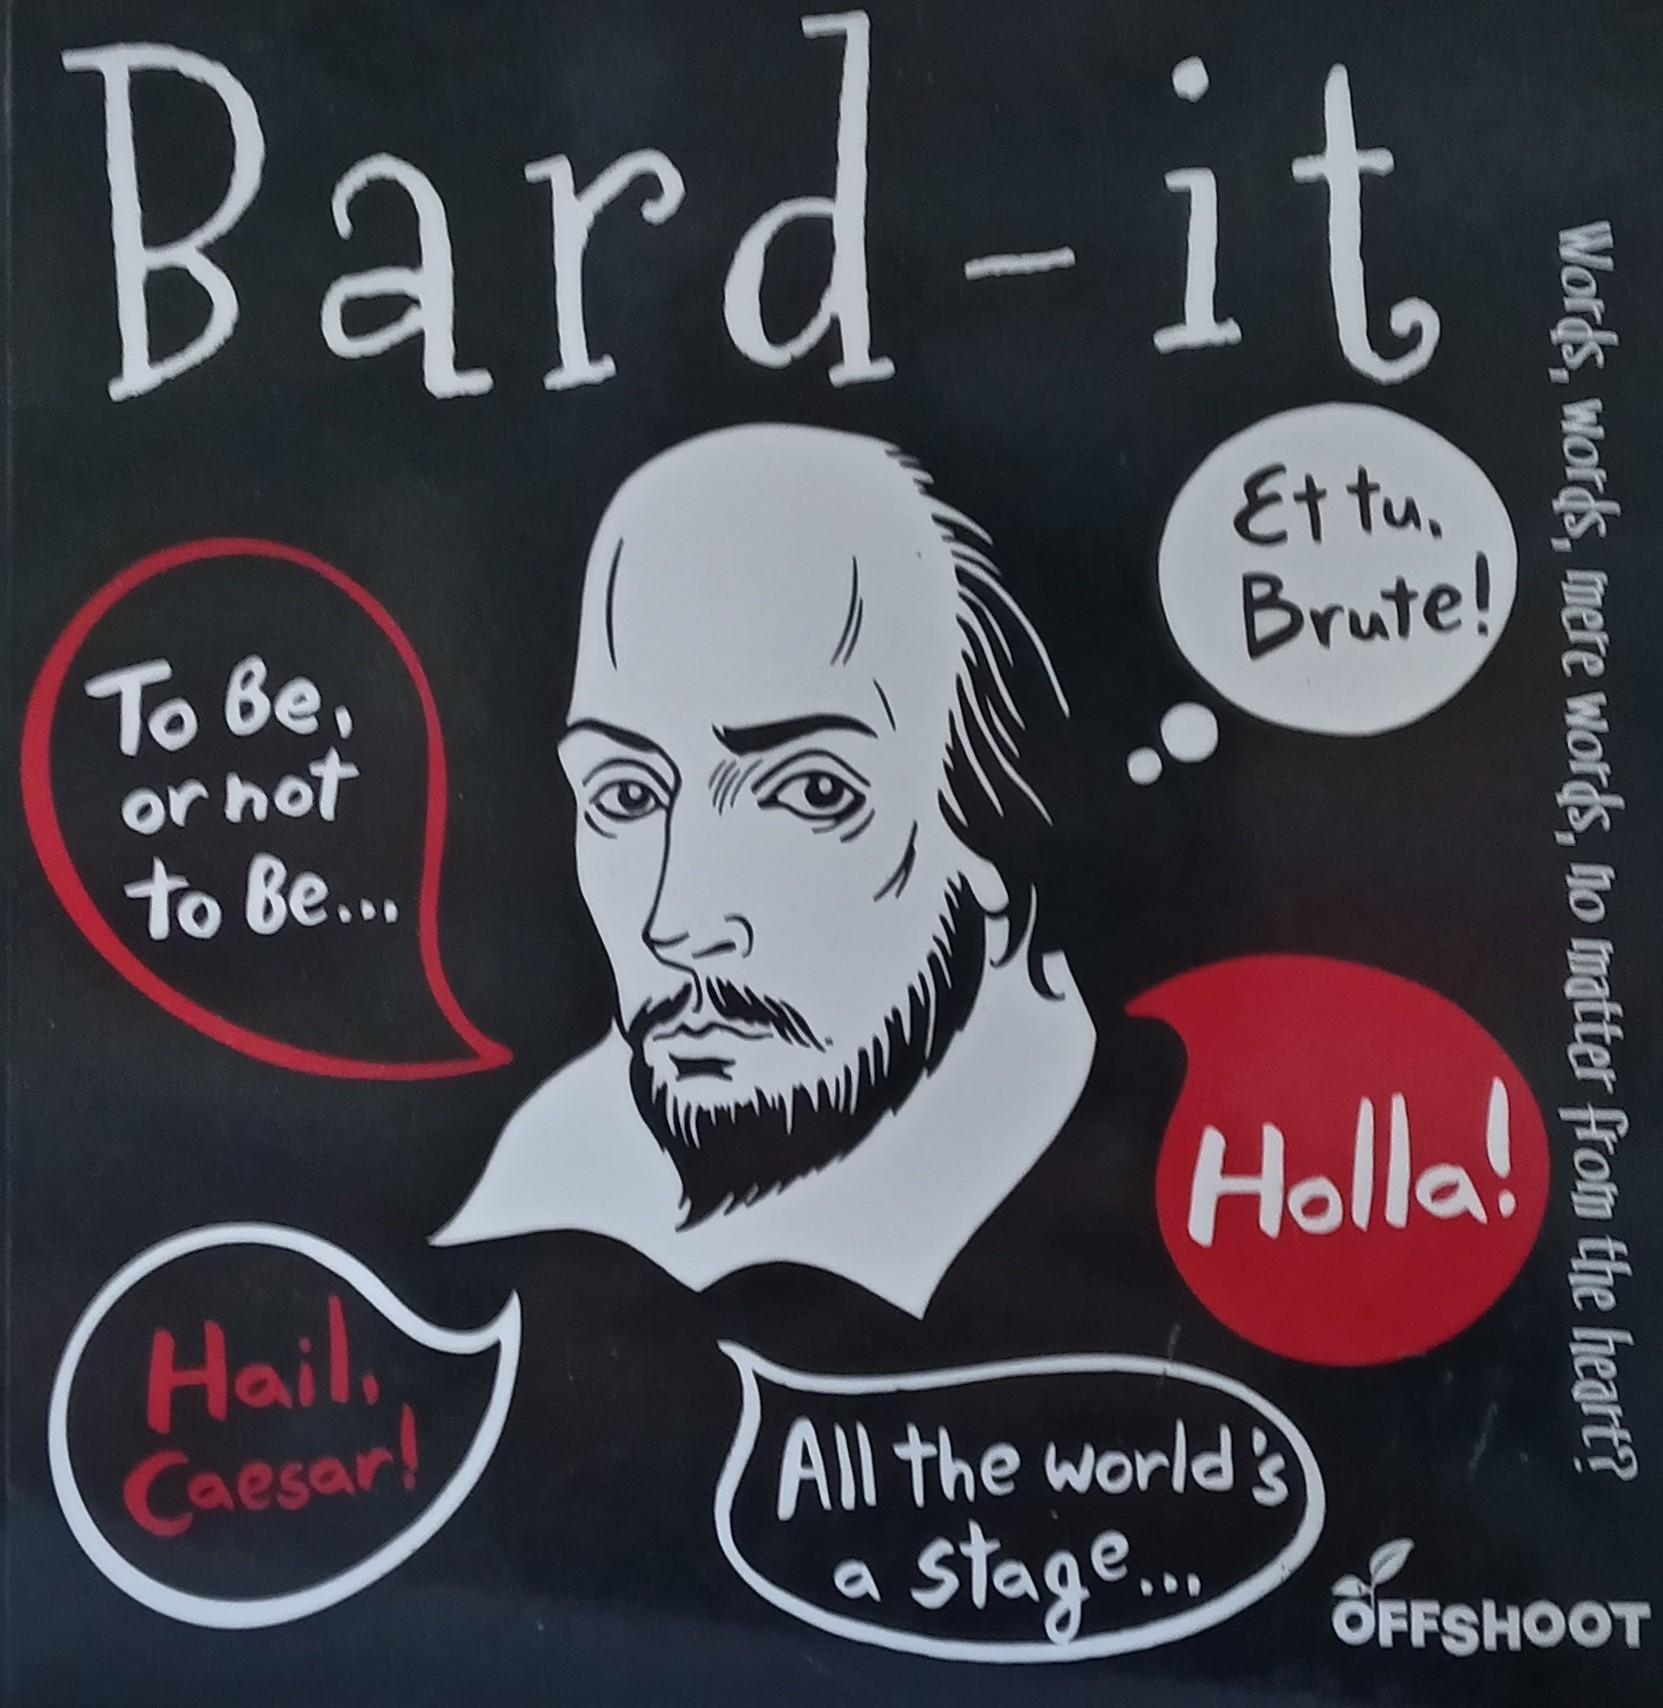 Bard-it
Et tu,
Brute!
To Be,
or not
to Be...
Words, words, mere words, no matter from the heart?
Holla!
Hail,
Caesar!
All the world's
a stage...
OFFSHOOT